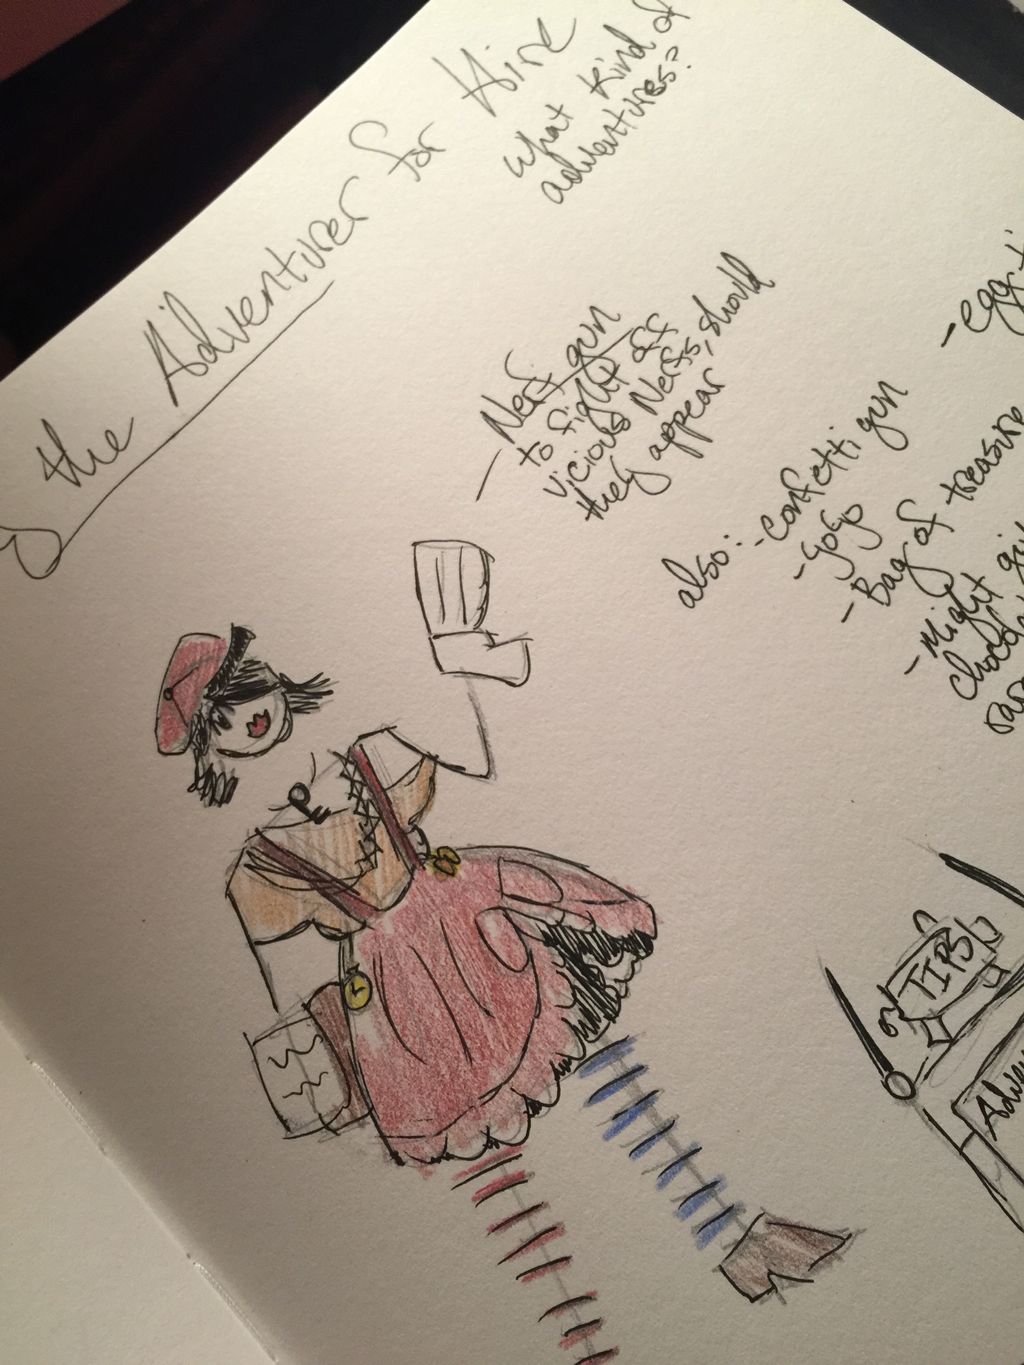 the Adventurer for Hire
what kind of
adventures?
- Nerf gun
to fight off
vicious Nerfs, should
they appear
- egg
also: - confetti gun
- yoyo
- Bag of treasure
- Might
TIPS